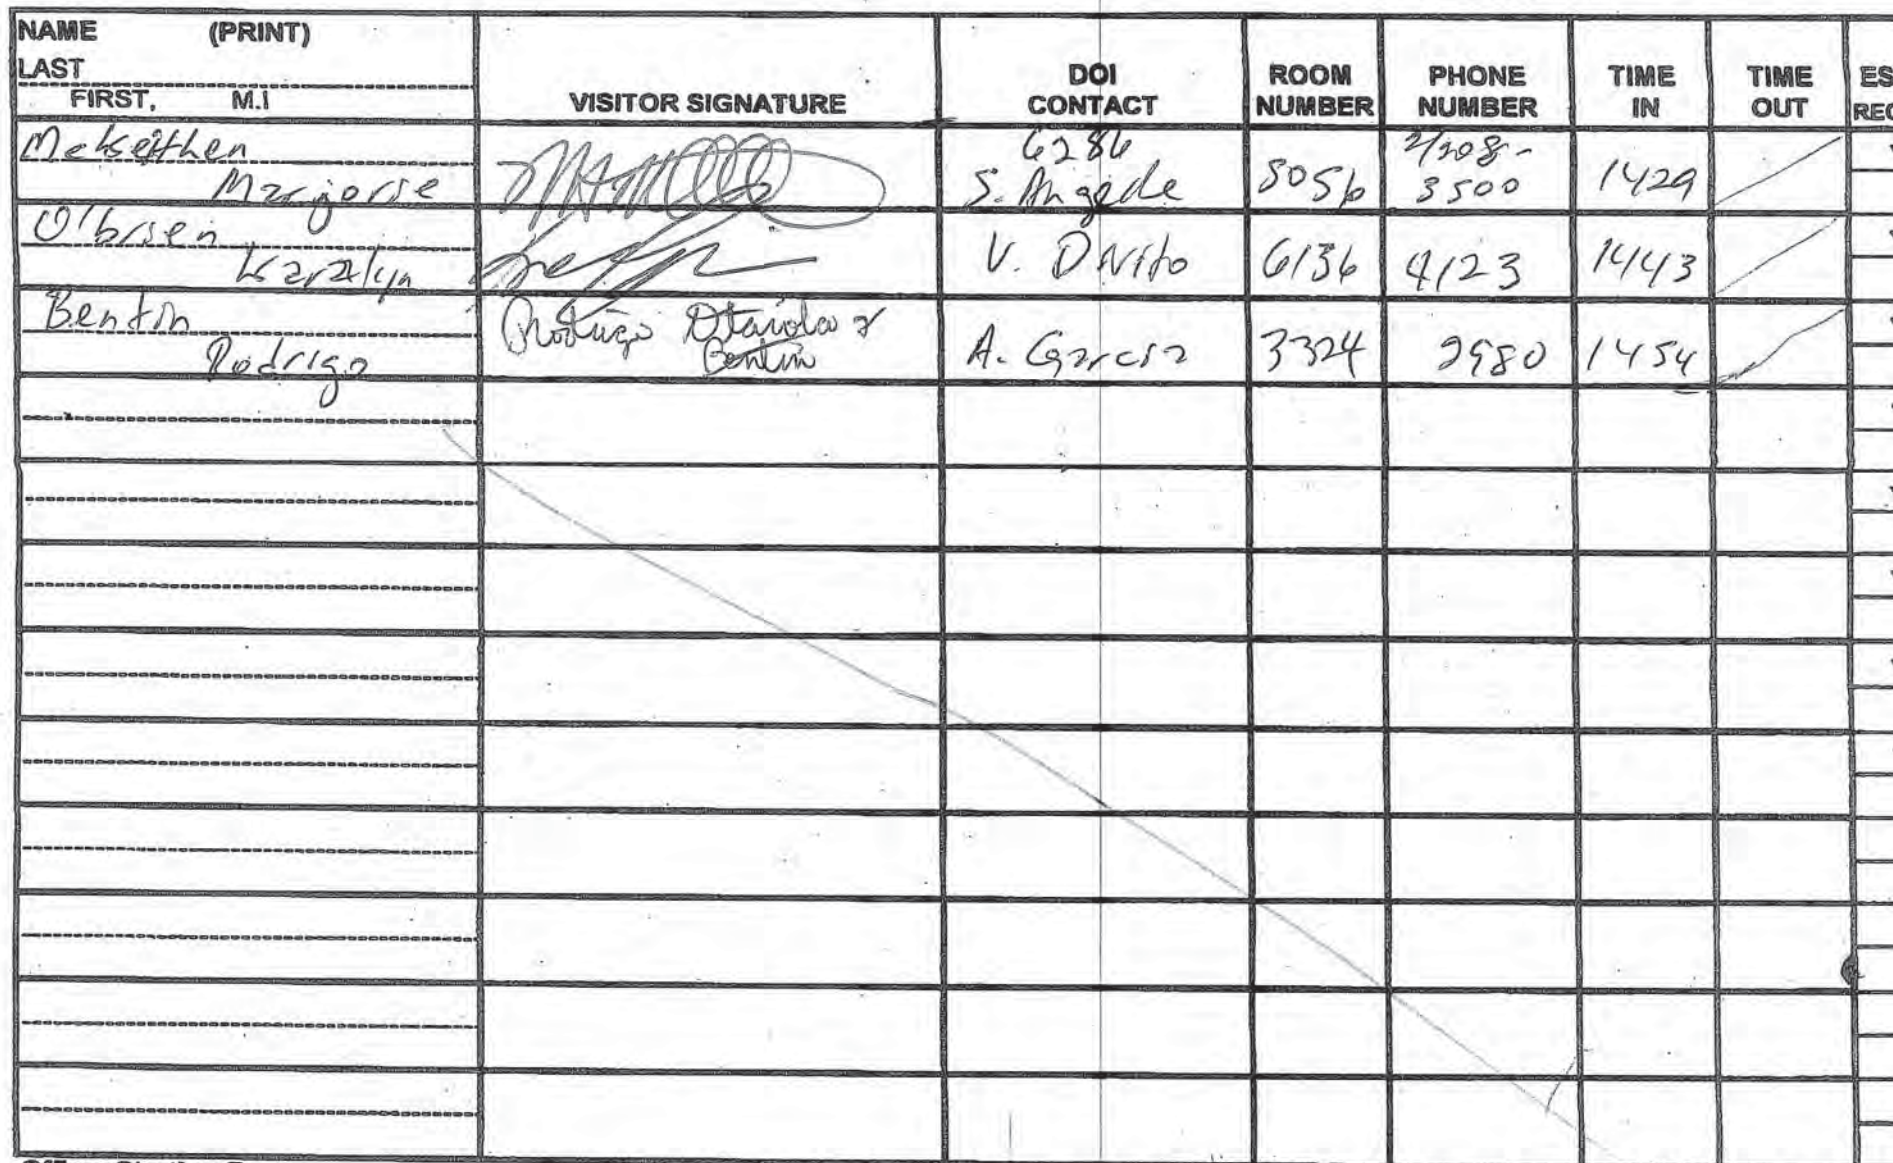 NAME (PRINT)
LAST
FIRST, M.I
VISITOR SIGNATURE
DOI
CONTACT
ROOM
NUMBER
PHONE
NUMBER
TIME
IN
TIME
OUT
ES
REC
McKeithen
Marjorie
6286
S. Angelle
3500
1429
O'brien
Karalyn
V. Divito
6136
4123
1443
Bentin
Rodrigo
Rodrigo Otaiola y
Bentin
A. Garcia
3324
2980
1454